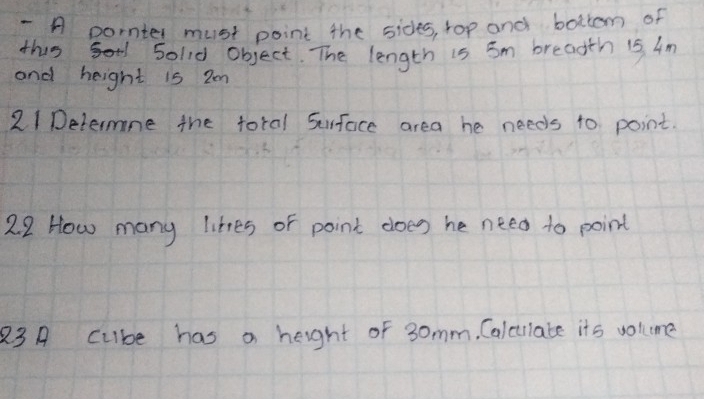 - A pornter must point the sides, top and bottom of
this Solid Object. The length is 5m breadth is 4m
and height is 2m
21 Determine the total Surface area he needs to point.
22 How many litres of point does he need to point
23 A cube has a height of 30mm. Calculate its volume